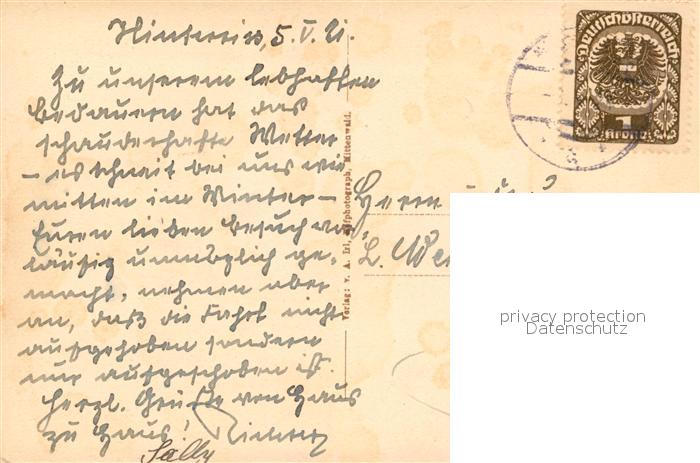 Hinterriss, 5. V. 21.
Zu unserem lebhaften
Bedauern hat das
schauderhafte Wetter
– es schneit bei uns wie
mitten im Winter –
Euren lieben Besuch vor-
läufig unmöglich ge-
macht, nehmen aber
an, daß die Fahrt nicht
aufgehoben sondern
nur aufgeschoben ist.
Herzl. Grüße von Haus
zu Haus! Richter
Sally
Verlag: v. A. Irl, Hofphotograph, Mittenwald.
Deutschösterreich
1
Krone
Herrn
L.
privacy protection
Datenschutz